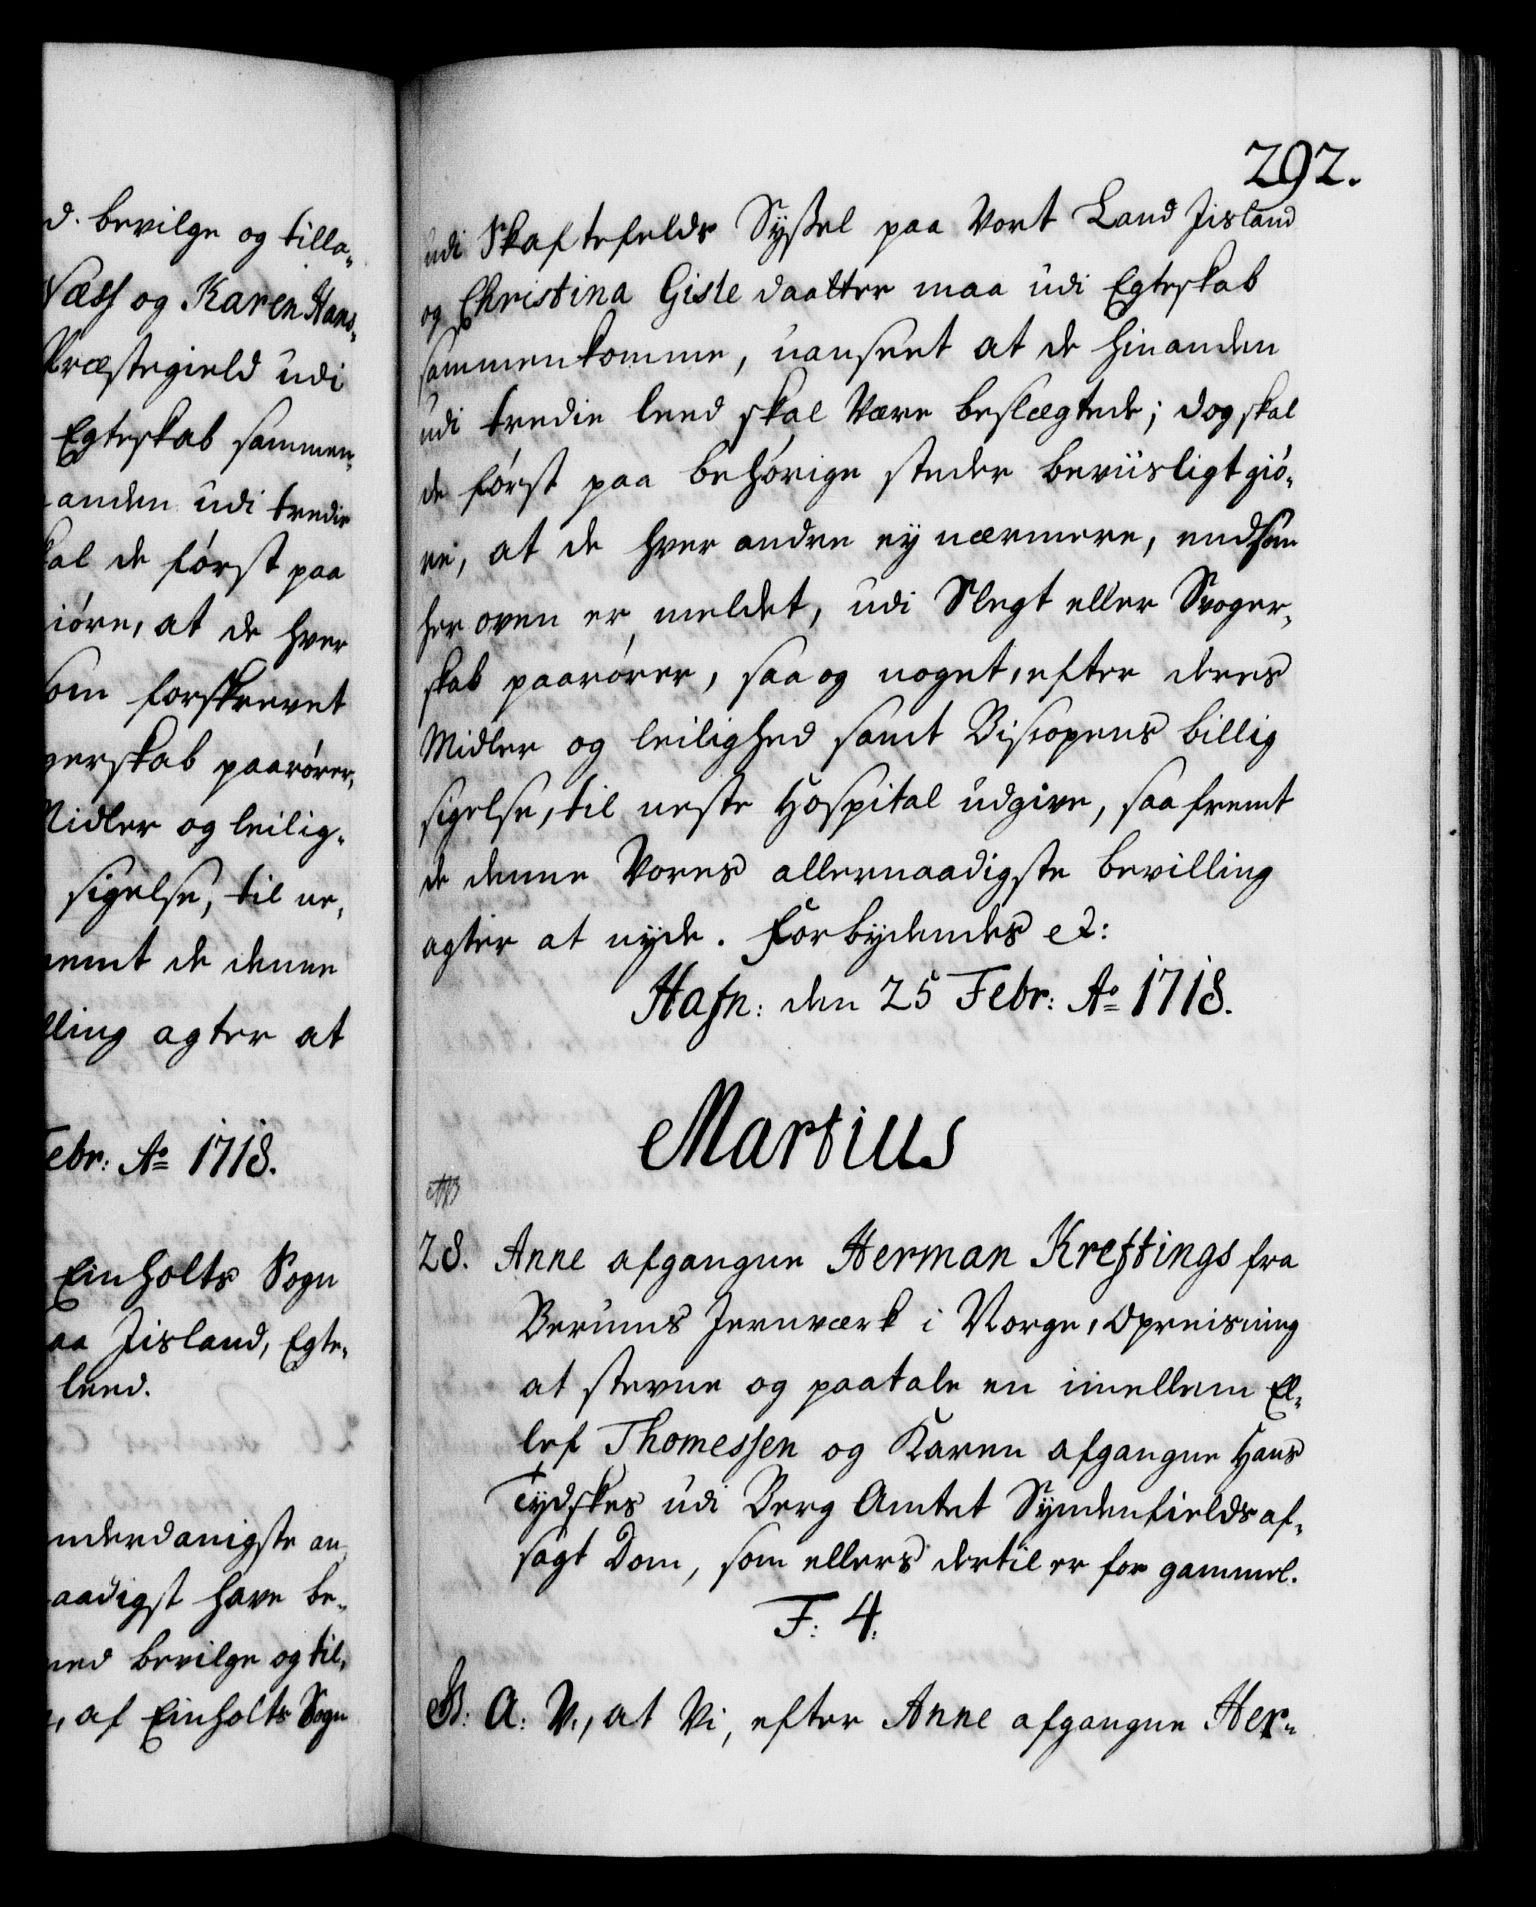 d. bevilge og tilla-
Næss og Karen Hans-
Præstegield udi
Egteskab sammen-
anden udi tredie
kal de först paa
iöre, at de hver
som forskrevet
gerskab paarörer,
Midler og leilig-
sigelse, til ne-
remt de denne
lling agter at
Febr: Ao 1718.
Einholts Sogn
aa Jisland, Egte-
leed.
nderdanigste an-
aadigst have be-
ned bevilge og til-
, af Einholts Sogn
292.
udi Skaftefelds Syssel paa Vort Land Jisland
og Christina Gisle daatter maa udi Egteskab
sammenkomme, uanseet at de hinanden
udi tredie leed skal være beslægtede; dog skal
de först paa behörige steder beviisligt giö-
re, at de hver andre ey nærmere, end som
her oven er meldet, udi Slegt eller Svoger-
skab paarörer, saa og noget, efter deres
Midler og leilighed samt Biscopens billig
sigelse, til neste Hospital udgive, saa fremt
de denne Vores allernaadigste bevilling
agter at nyde. Forbydendes etc:
Hafn: den 25 Febr: Ao 1718.
Martius
28. Anne afgangne Herman Kreftings fra
Berums Jernværk i Norge, Opreisning
at stevne og paatale en imellem El-
lef Thomessen og Karen afgangne Hans
Tydskes udi Berg Amtet Syndenfields af-
sagt Dom, som ellers dertil er for gammel.
F: 4.
G: A: V., at Vi, efter Anne afgangne Her-